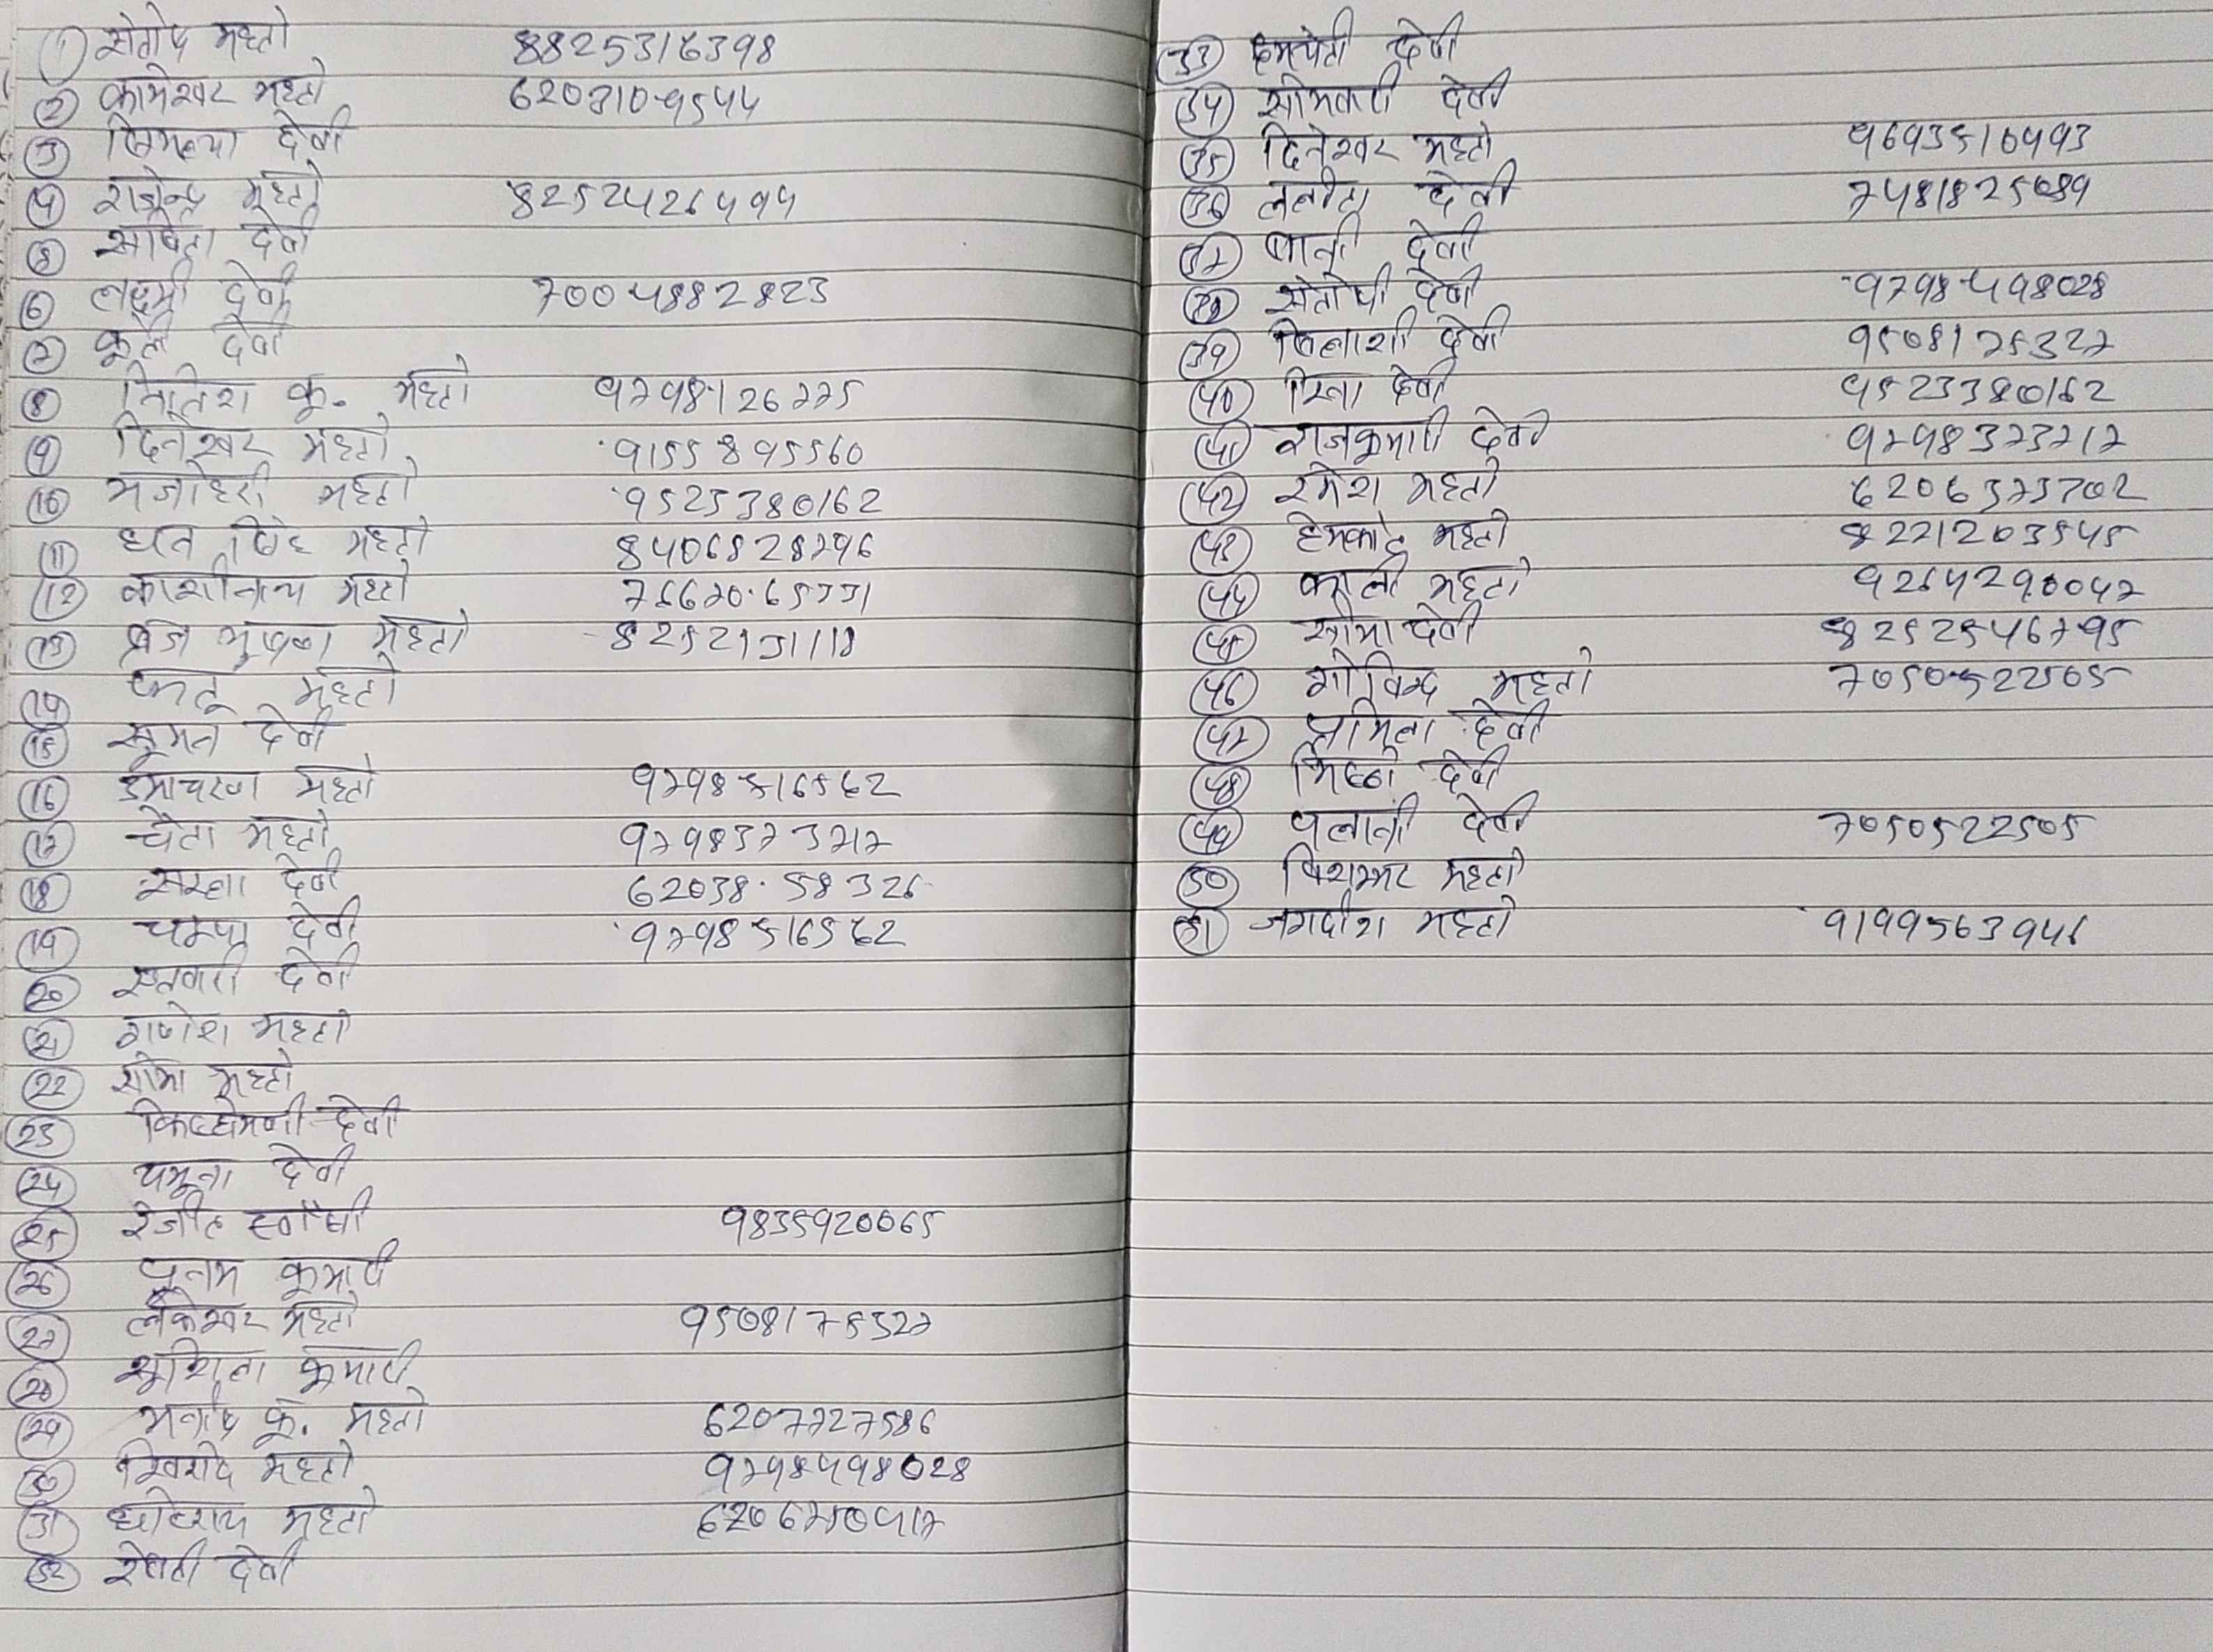 ① संतोष महतो 8825316398
② कामेश्वर महतो 6203109544
③ विमल्या देवी
④ राजेन्द्र महतो 8252426494
⑤ सावित्रा देवी
⑥ लक्ष्मी देवी 7004882823
⑦ कुन्ती देवी
⑧ नितेश कु. महतो 9798126775
⑨ दिनेश्वर महतो 9155895560
⑩ मजोहरी महतो 9523380162
⑪ धन सिंह महतो 8406828796
⑫ काशीनाथ महतो 7667065331
⑬ ब्रज भुषण महतो 8252131118
⑭ महतो
⑮ सुमन देवी
⑯ उमाचरण महतो 9798516562
⑰ चैता महतो 9798373217
⑱ सरला देवी 6203858326
⑲ चम्पा देवी 9798516562
⑳ देवी
㉑ गणेश महतो
㉒ सोमा महतो
㉓ देवी
㉔ यमुना देवी
㉕ रंजीत 9835920065
㉖ पुनम कुमारी
㉗ लंकेश्वर महतो 9508175327
㉘ सुशिला कुमारी
㉙ मनोज कु. महतो 6207727586
㉚ महतो 9798498028
㉛ महतो 6206750417
㉜ रेवती देवी
㉝ देवी
㉞ सोमवारी देवी
㉟ दिनेश्वर महतो 9693510493
㊱ ललीता देवी 7481825089
㊲ देवी
㊳ संतोषी देवी 9798498028
㊴ विलाशी देवी 9508175327
㊵ रिना देवी 9523380162
㊶ राजकुमारी देवी 9798373217
㊷ रमेश महतो 6206373702
㊸ हेमकांत महतो 8221203545
㊹ काली महतो 9264290047
㊺ सोमा देवी 8252546795
㊻ गोविन्द महतो 7050522505
㊼ प्रमिला देवी
㊽ देवी
㊾ देवी 7050522505
㊿ विशम्भर महतो
(51) जगदीश महतो 9199563946